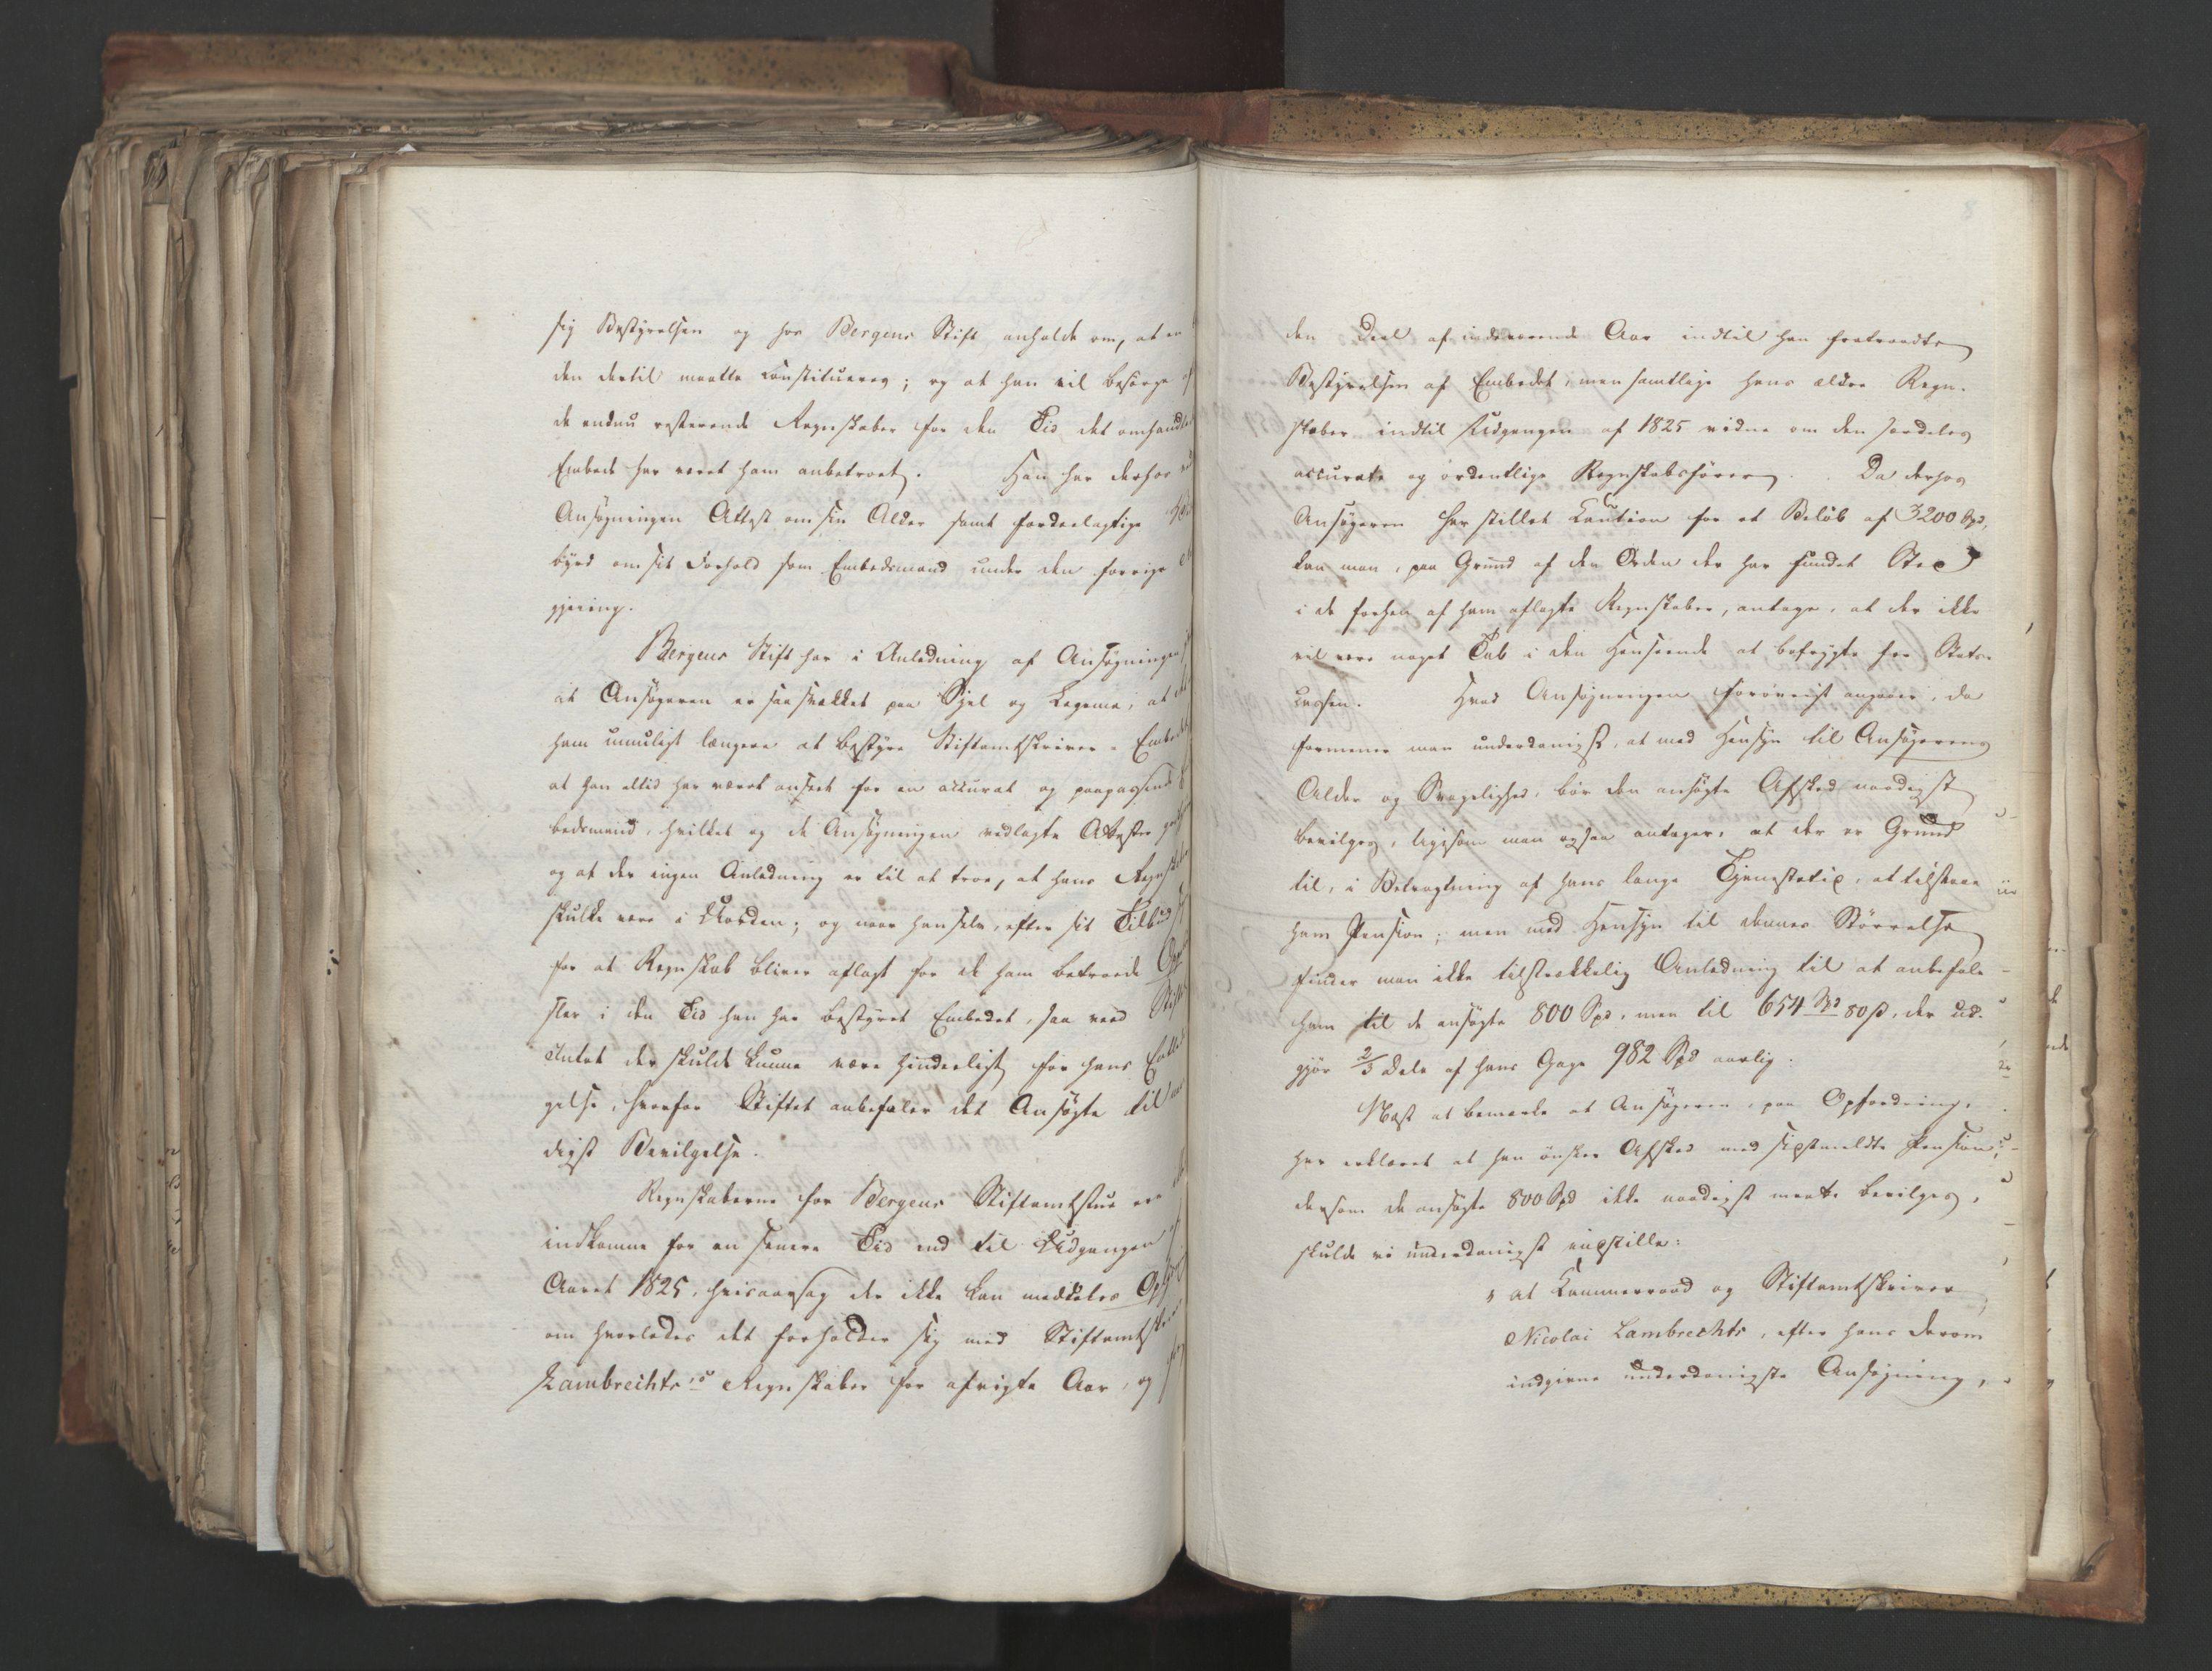 sig Bestyrelsen og hos Bergens Stift anholdt om, at en
den dertil maatte constitueres; og at han vil besørge af
de endnu resterende Regnskaber for den Tid det omhandl
Embede har været ham anbetroet. Han har derhos
Ansøgningen Attest om sin Alder samt fordeelagtige
byrd om sit Forhold som Embedsmand under den forrige
gjering.
Bergens Stift har i Anledning af Ansøgningen
at Ansøgeren er saa svækket paa Sjel og Legeme, at
ham umuligt længere at bestyre Stiftamtskriver-Embedet
at han altid har været anseet for en accurat og paapassende
bedsmand, hvilket og de Ansøgningen vedlagte Attester
og at der ingen Anledning er til at troe, at hans Regnskaber
skulde være i Uorden; og naar han selv, efter sit Tilbud
for at Regnskab bliver aflagt for de ham betroede
sler i den Tid han har bestyret Embedet, saa veed Stiftet
Intet der skulde kunne være hinderligt for hans Entledi
gelse, hvorfor Stiftet anbefaler det Ansøgte til naa
digst Bevilgelse.
Regnskaberne for Bergens Stiftamtstue ere
indkomne for en senere Tid end til Udgangen af
Aaret 1825, hvisaarsag der ikke kan meddeles
om hvorledes det forholder sig med Stiftamtskriver
Lambrechts's Regnskaber for afvigte Aar, og
8
den Deel af indeværende Aar indtil han fratraadte
Bestyrelsen af Embedet, men samtlige hans ældre Regn-
skaber indtil Udgangen af 1825 vidne om den særdeles
accurate og ordentlige Regnskabsfører. Da derhos
Ansøgeren har stillet Caution for et Beløb af 3200 Spd,
kan man, paa Grund af den Orden der har fundet Sted
i de forhen af ham aflagte Regnskaber, antage, at der ikke
vil være noget Tab i den Henseende at befrygte for Stats-
cassen. Hvad Ansøgningen forøvrigt angaaer, da
formener man underdanigst, at med Hensyn til Ansøgerens
Alder og Svagelighed, bør den ansøgte Afsked naadigst
bevilges, ligesom man ogsaa antager, at der er Grund
til, i Betragtning af hans lange Tjenestetid, at tilstaae
ham Pension; men med Hensyn til dennes Størrelse
finder man ikke tilstrækkelig Anledning til at anbefale
ham til de ansøgte 800 Spd, men til 654 Spd 80 ß, der ud-
gjør 2/3 Dele af hans Gage 982 Spd aarlig.
Næst at bemærke at Ansøgeren, paa Opfordring,
har erklæret at han ønsker Afsked med sidstmeldte Pension,
dersom de ansøgte 800 Spd ikke naadigst maatte bevilges,
skulde vi underdanigst indstille:
"at Kammerraad og Stiftamtskriver
Nicolai Lambrechts, efter hans derom
indgivne underdanigste Ansøgning,